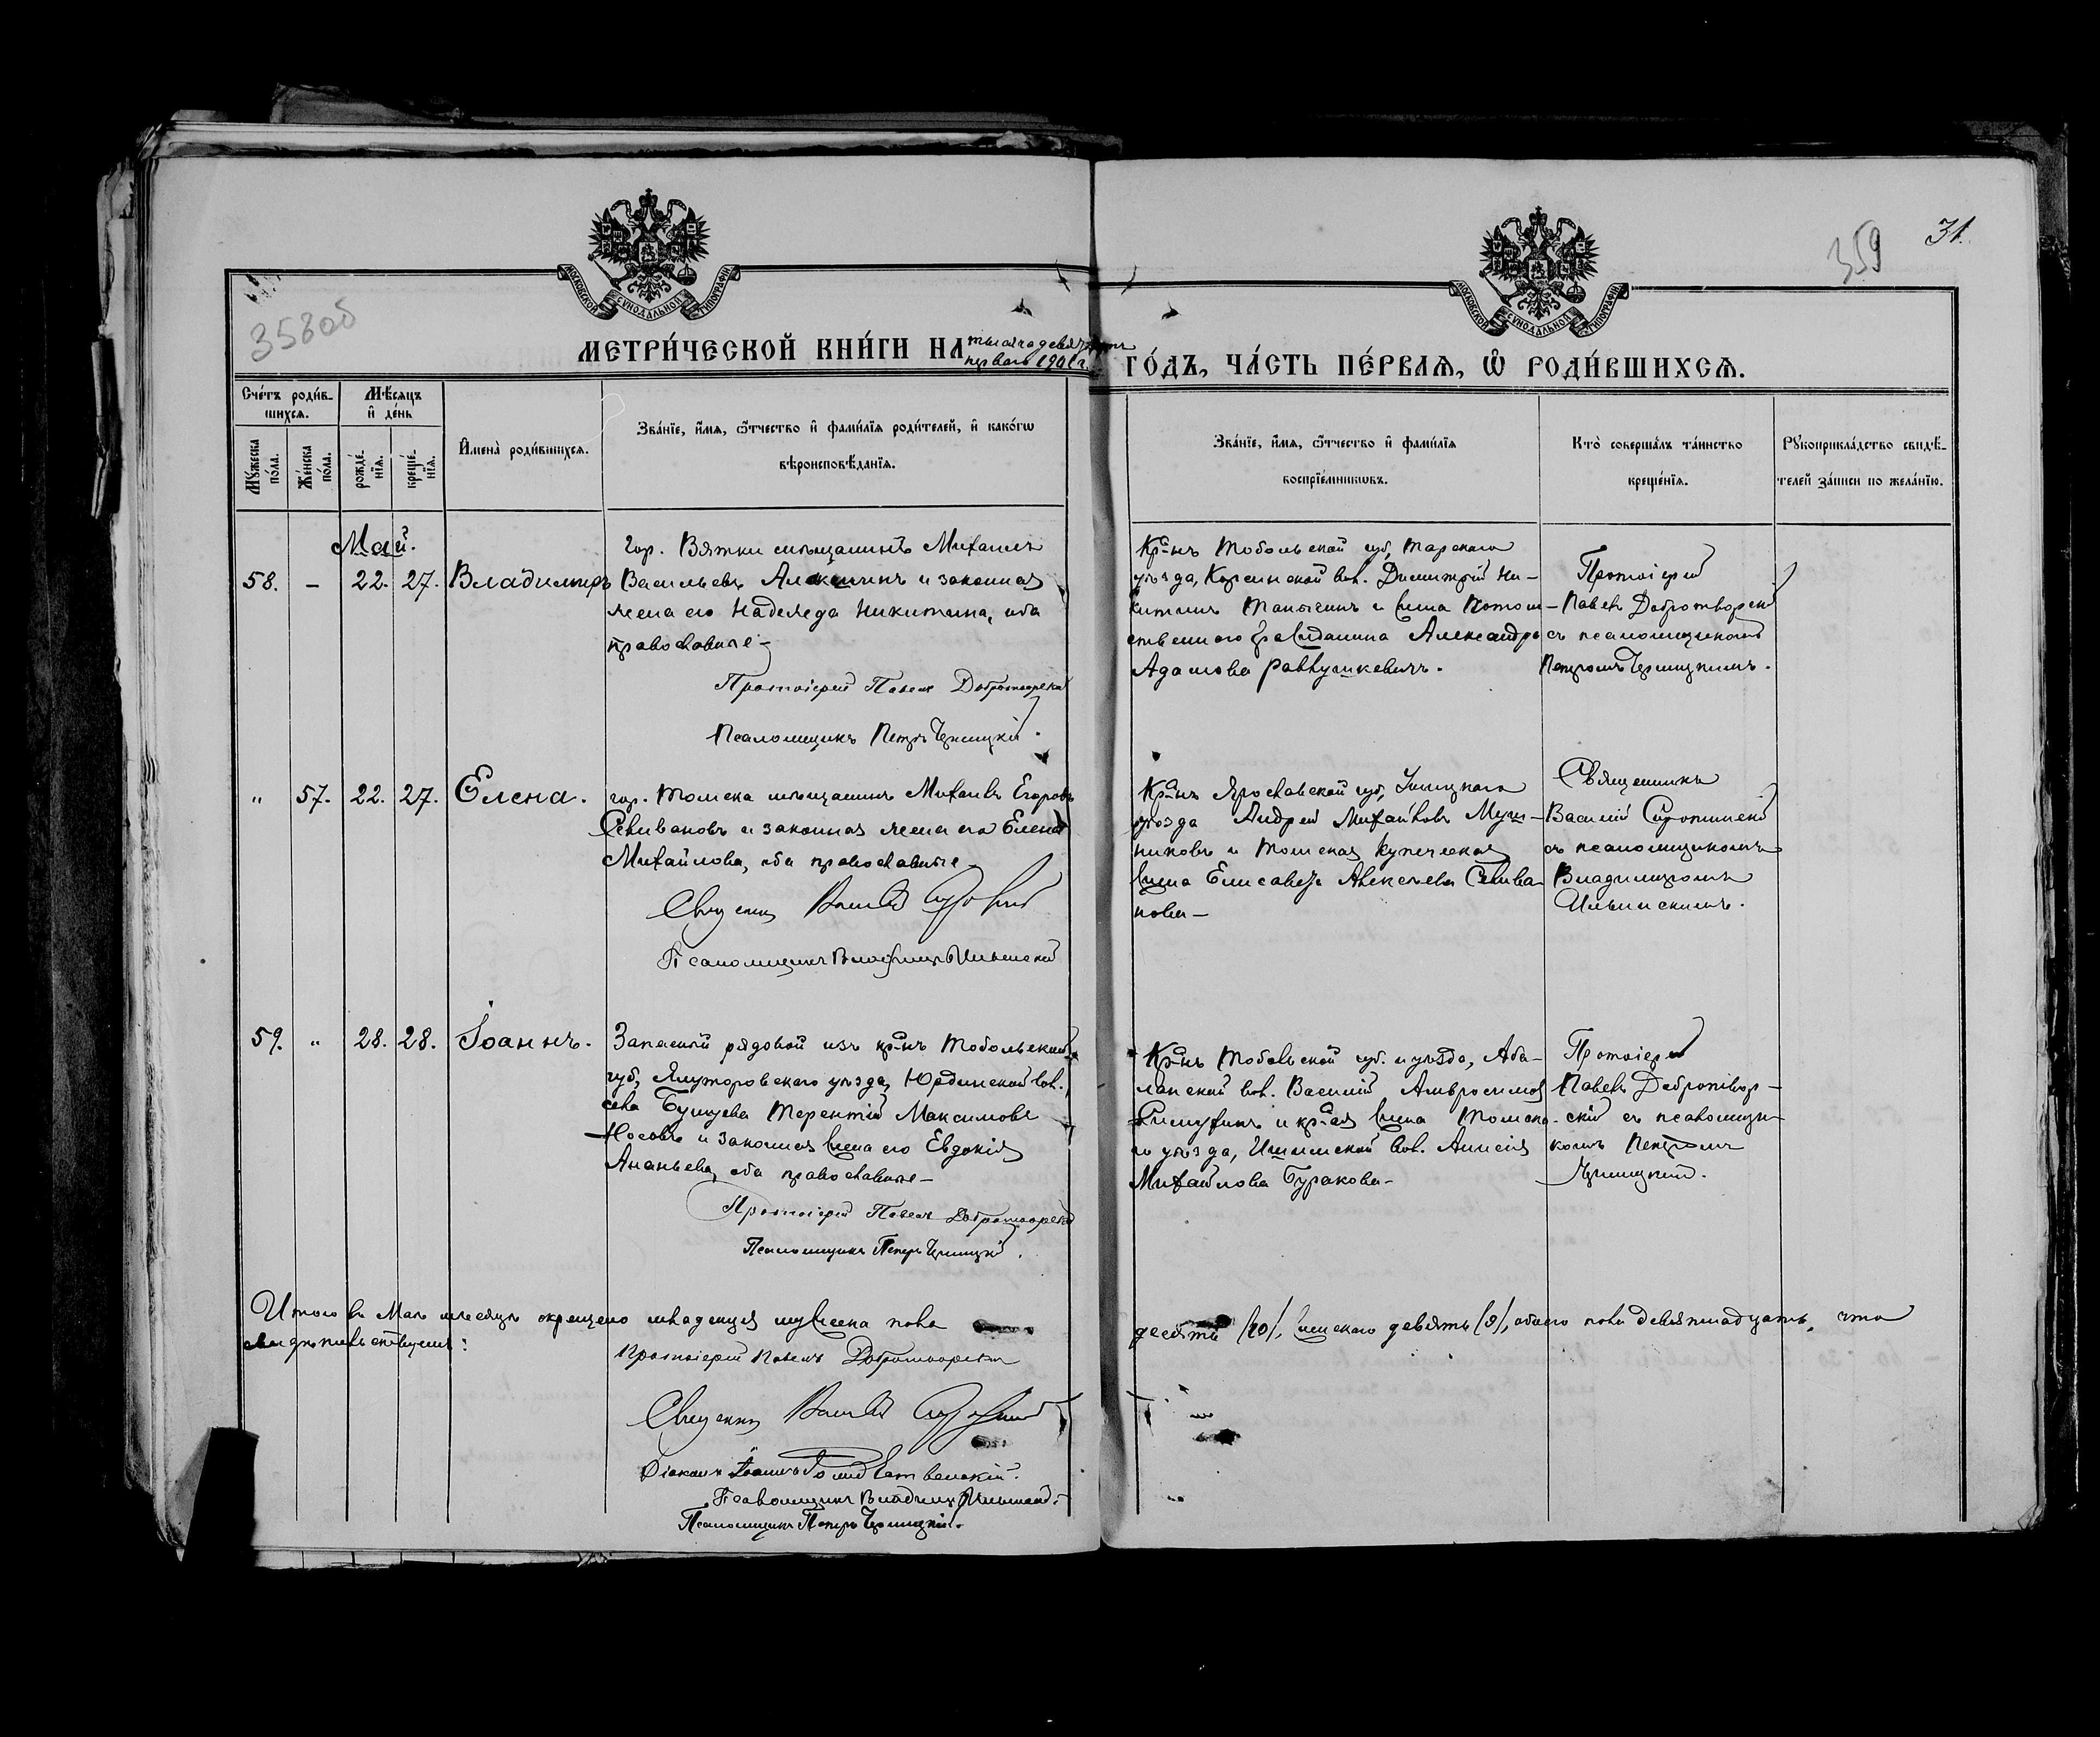 359
31.
358об
МОСКОВСКОЙ СѴНОДАЛЬНОЙ ТИПОГРАФІИ
МОСКОВСКОЙ СѴНОДАЛЬНОЙ ТИПОГРАФІИ
МЕТРИ́ЧЕСКОЙ КНИ́ГИ НА тысяча девятьсотъ
перваго 1901 г. ГО́ДЪ, ЧА́СТЬ ПЕ́РВАѦ, Ѿ РОДИ́ВШИХСѦ.
Сче́тъ роди́в-
шихсѧ.
Мѣ́сѧцъ
и҆ де́нь
Мꙋ́жеска
по́ла.
Же́нска
по́ла.
рожде́-
нїѧ.
креще́-
нїѧ.
И҆мена̀ роди́вшихсѧ.
Зва́нїе, и҆́мѧ, ѻ҆́тчество и҆ фами́лїѧ роди́телей, и҆ како́гѡ
вѣроисповѣ́данїѧ.
Зва́нїе, и҆́мѧ, ѻ҆́тчество и҆ фами́лїѧ
воспрїе́мникѡвъ.
Кто̀ соверша́лъ та́инство
креще́нїѧ.
Рꙋкоприкла́дство свидѣ́-
телей за́писи по жела́нїю.
Май.
58. – 22. 27. Владимиръ
Гор. Вятки мѣщанинъ Михаилъ
Васильевъ и законная
жена его Надежда Никитина, оба
православные –
Протоіерей Павелъ Добротворскій
Псаломщикъ Петръ
Кр-нъ Тобольской губ, Тарскаго
уѣзда, вол. Димитрій Ни-
китинъ и жена Потом-
ственнаго гражданина Александра
Адамова
Протоіерей
Павелъ Добротворскій
съ псаломщикомъ
Петромъ
„ 57. 22. 27. Елена.
гор. Томска мѣщанинъ Михаилъ Егоровъ
Селивановъ и законная жена его Елена
Михайлова, оба православные
Священникъ Василій
Псаломщикъ Владиміръ Ильинскій
Кр-нъ Ярославской губ,
уѣзда Андрей Михайловъ
никовъ и Томская купеческая
жена Елисавета Алексѣева Селива-
нова –
Священникъ
Василій
съ псаломщикомъ
Владиміромъ
Ильинскимъ.
59. „ 28. 28. Іоаннъ.
Запасный рядовой изъ кр-нъ Тобольской
губ, Ялуторовскаго уѣзда, вол.,
села Терентій Максимовъ
Носовъ и законная жена его Евдокія
Ананьева, оба православные –
Протоіерей Павелъ Добротворскій
Псаломщикъ Петръ
Кр-нъ Тобольской губ. и уѣзда, Аба-
лакской вол. Василій Амвросимовъ
и кр-ая жена Томска-
го уѣзда, Ишимской вол. Анисія
Михайлова Буракова –
Протоіерей
Павелъ Добротвор-
скій съ псаломщи-
комъ Петромъ
Итого въ Маѣ мѣсяцѣ окрещено младенцевъ мужеска пола
десять (10), женскаго девять (9), обоего пола девятнадцать, что
свидѣтельствуемъ:
Протоіерей Павелъ Добротворскій
Священникъ Василій
Діаконъ Іоаннъ
Псаломщикъ Владиміръ Ильинскій.
Псаломщикъ Петръ